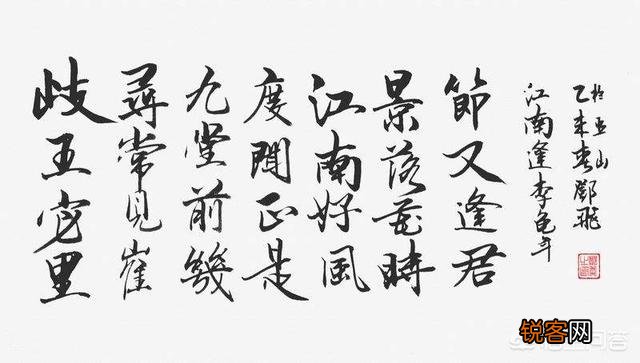 歧王宅里
尋常見崔
九堂前幾
度聞正是
江南好風
景落花時
節又逢君
江南逢李龜年
乙未春鄧飛
锐客网